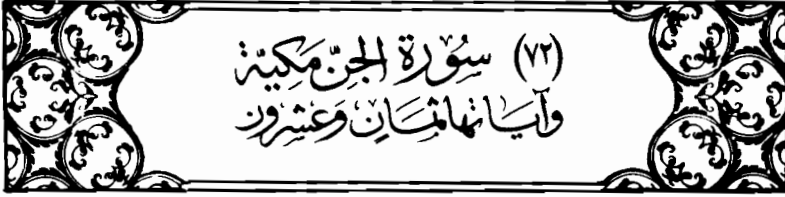 (٧٢) سُوْرَة الجِنّ مَكِيَّة
وَآيَاتهَا ثمَانٍ وَعشِرُون